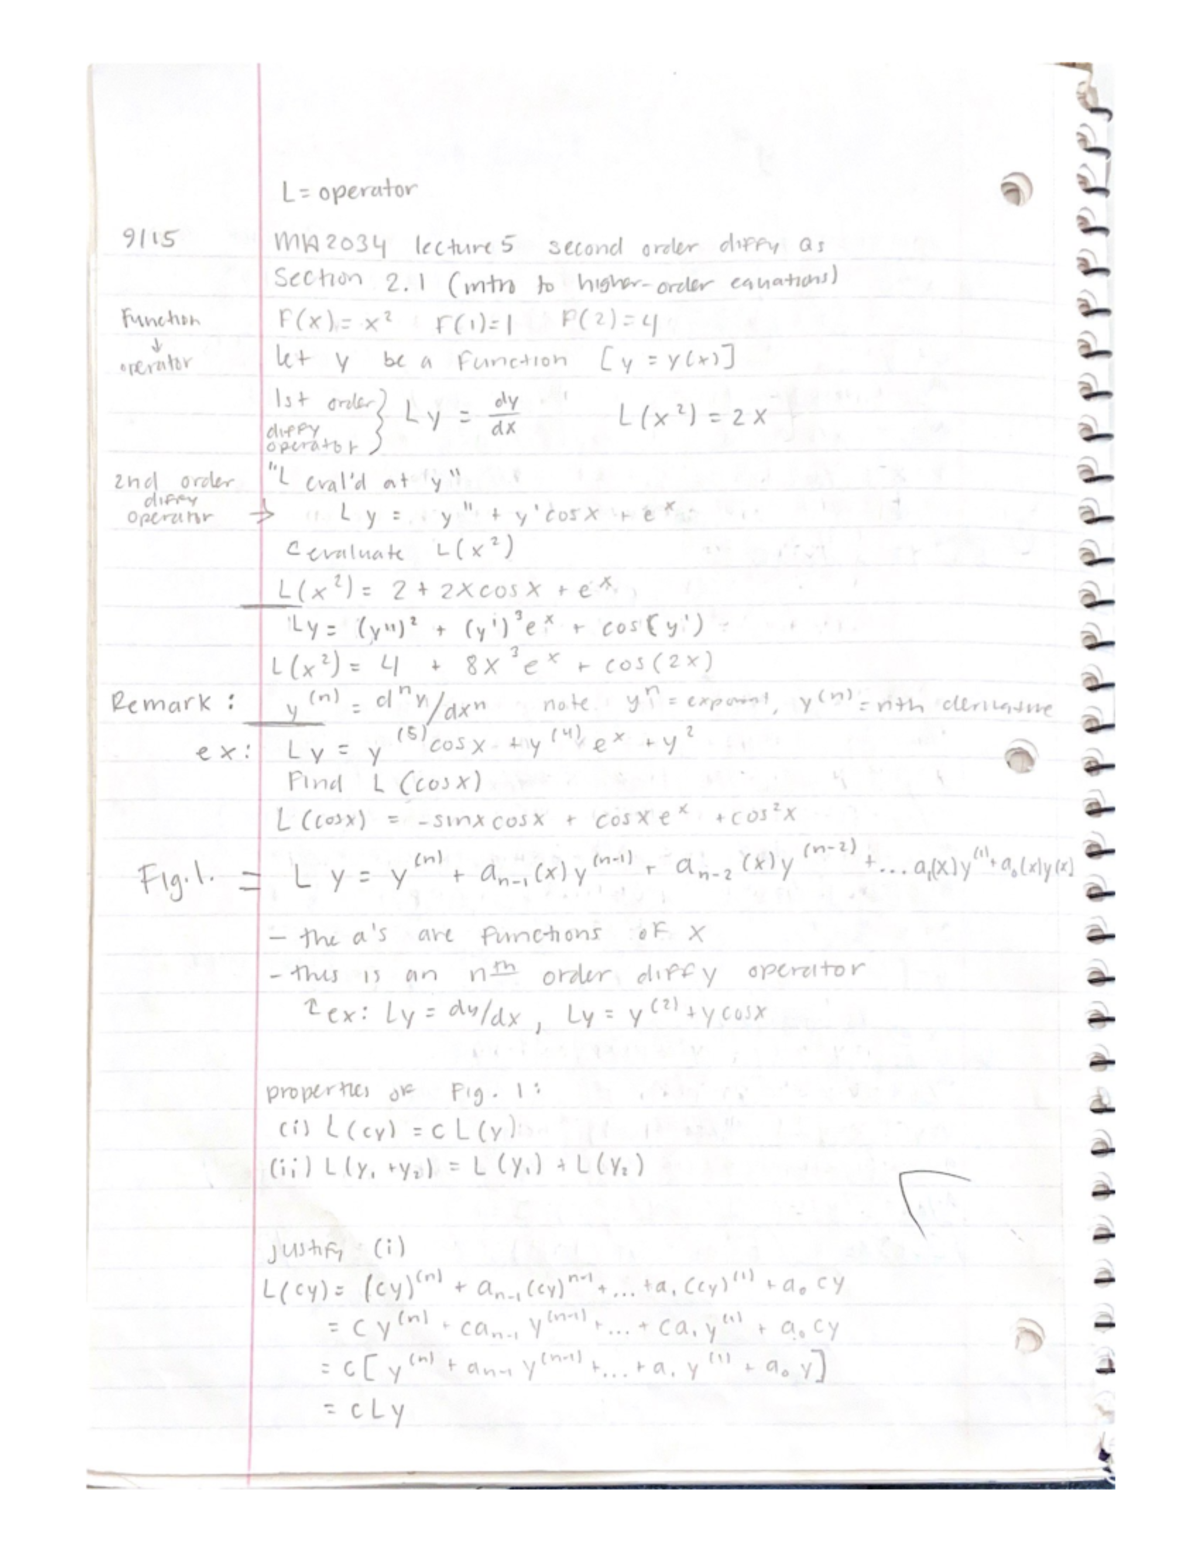 L = operator
9/15 MA2034 lecture 5 second order diffy as
Section 2.1 (intro to higher-order equations)
Function ↓ operator
F(x) = x² F(1)=1 F(2)=4
let y be a function [y = y(x)]
1st order diffy operator } Ly = dy/dx L(x²) = 2x
"L eval'd at y"
2nd order diffy operator → Ly = y'' + y'cosx + e^x
evaluate L(x²)
L(x²) = 2 + 2xcosx + e^x
Ly = (y'')² + (y')³e^x + cos(y')
L(x²) = 4 + 8x³e^x + cos(2x)
Remark: y^(n) = d^n y/dx^n note: y^n = exponent, y^(n) = nth derivative
ex: Ly = y^(5)cosx + y^(4)e^x + y²
Find L(cosx)
L(cosx) = -sinxcosx + cosxe^x + cos²x
Fig.1. = Ly = y^(n) + a_{n-1}(x)y^(n-1) + a_{n-2}(x)y^(n-2) + ... a₁(x)y^(1) + a₀(x)y(x)
- the a's are functions of x
- this is an nth order diffy operator
ex: Ly = dy/dx, Ly = y^(2) + ycosx
properties of Fig. 1:
(i) L(cy) = cL(y)
(ii) L(y₁+y₂) = L(y₁) + L(y₂)
justify (i)
L(cy) = (cy)^(n) + a_{n-1}(cy)^{n-1} + ... + a₁(cy)^(1) + a₀cy
= cy^(n) + ca_{n-1}y^(n-1) + ... + ca₁y^(1) + a₀cy
= c[y^(n) + a_{n-1}y^(n-1) + ... + a₁y^(1) + a₀y]
= cLy